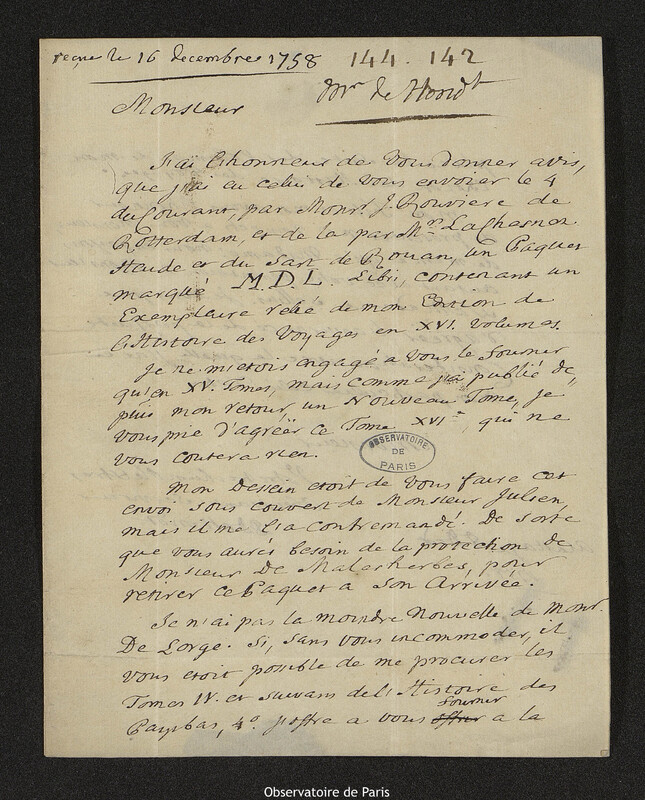 reçue le 16 decembre 1758 144. 142
Mr de Hondt
Monsieur
J'ai l'honneur de Vous donner avis,
que j'ai eu celui de vous envoier le 4
du Courant, par Monsr. J. Rouviere de
Rotterdam, et de la par Mrs. La Chesnez
Heude et du Sart de Rouan, un Paquet
marqué M.D.L. Libri, contenant un
Exemplaire relié de mon Edition de
l'Histoire des Voyages en XVI. Volumes.
Je ne m'etois engagé a Vous le fournir
qu'en XV. Tomes, mais comme j'ai publié de,
puis mon retour, un Nouveau Tome, je
Vous prie d'agréer ce Tome XVIe. qui ne
Vous coutera rien.
OBSERVATOIRE
DE
PARIS
Mon Dessein etoit de Vous faire cet
envoi sous couvert de Monsieur Julien,
mais il me l'a Contremandé. De sorte
que vous aurés besoin de la protection de
Monsieur De Malesherbes, pour
retirer ce Paquet a Son Arrivée.
Je n'ai pas la moindre Nouvelle de Monsr.
De Lorge. Si, sans vous incommoder, il
vous etoit possible de me procurer les
Tomes IV. et suivans de l'Histoire des
fournir
Paysbas, 4o. j'offre a vous offrir a la
Observatoire de Paris